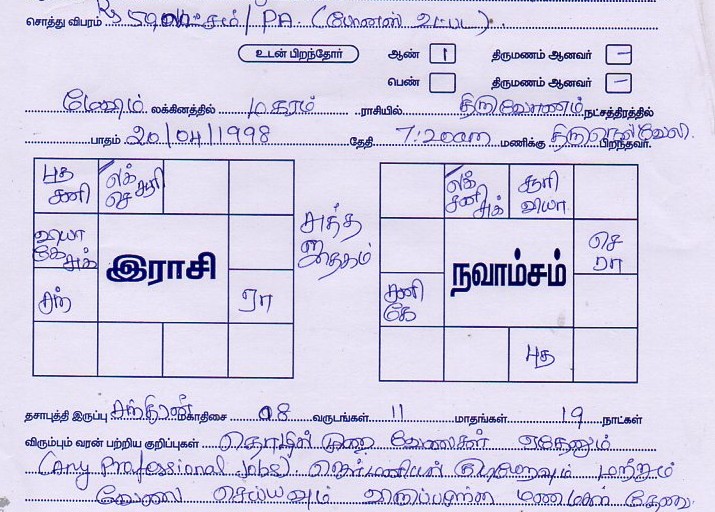 சொத்து விபரம் Rs 59 லட்சம் / PA. (போனஸ் உட்பட).
உடன் பிறந்தோர் ஆண் 1 திருமணம் ஆனவர் —
பெண் திருமணம் ஆனவர் —
மேஷம் லக்கினத்தில் மகரம் ராசியில் திருவோணம் நட்சத்திரத்தில்
பாதம் 20/04/1998 தேதி 7:20am மணிக்கு திருநெல்வேலி. பிறந்தவர்.
புத சனி
லக் செ சூரி
வியா கே சுக்
சந்
இராசி
ரா
சுத்த ஜாதகம்
லக் சனி சுக்
சூரி வியா
செ ரா
நவாம்சம்
சனி கே
புத
தசாபுத்தி இருப்பு சந்திரன் மகாதிசை 08 வருடங்கள் 11 மாதங்கள் 19 நாட்கள்
விரும்பும் வரன் பற்றிய குறிப்புகள் தொழில் முறை வேலைகள் ஏதேனும்
(Any Professional Jobs). ஜெர்மனியில் குடியேறவும் மற்றும்
வேலை செய்யவும் விருப்பமுள்ள மணமகன் தேவை